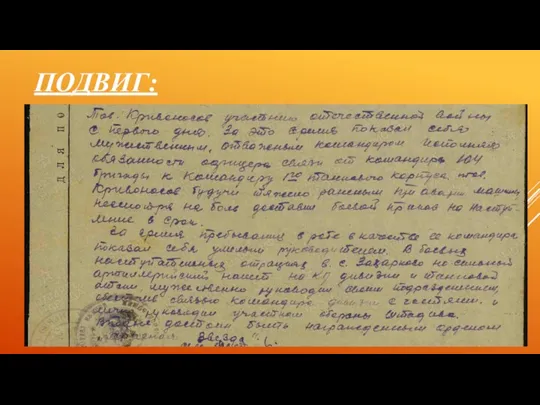 ПОДВИГ:
ДЛЯ ПО
Тов. Кривоносов участник отечественной войны
с первого дня. За это время показал себя
мужественным, отважным командиром исполняя
обязанности офицера связи от командира 104
бригады к командиру 1го танкового корпуса тов.
Кривоносов будучи тяжело раненым при аварии машины
несмотря на боль доставил боевой приказ на наступ-
ление в срок.
За время пребывания в роте в качестве ее командира
показал себя умелым руководителем. В боевых
наступательных операциях в с. Захаркого не сильный
артиллерийский налет на КП дивизии и танковой
атаки, мужественно руководил своим подразделением,
связью командира дивизии с частями и
руководил участком обороны Штадива.
достоин быть награжденным орденом
Звезда".